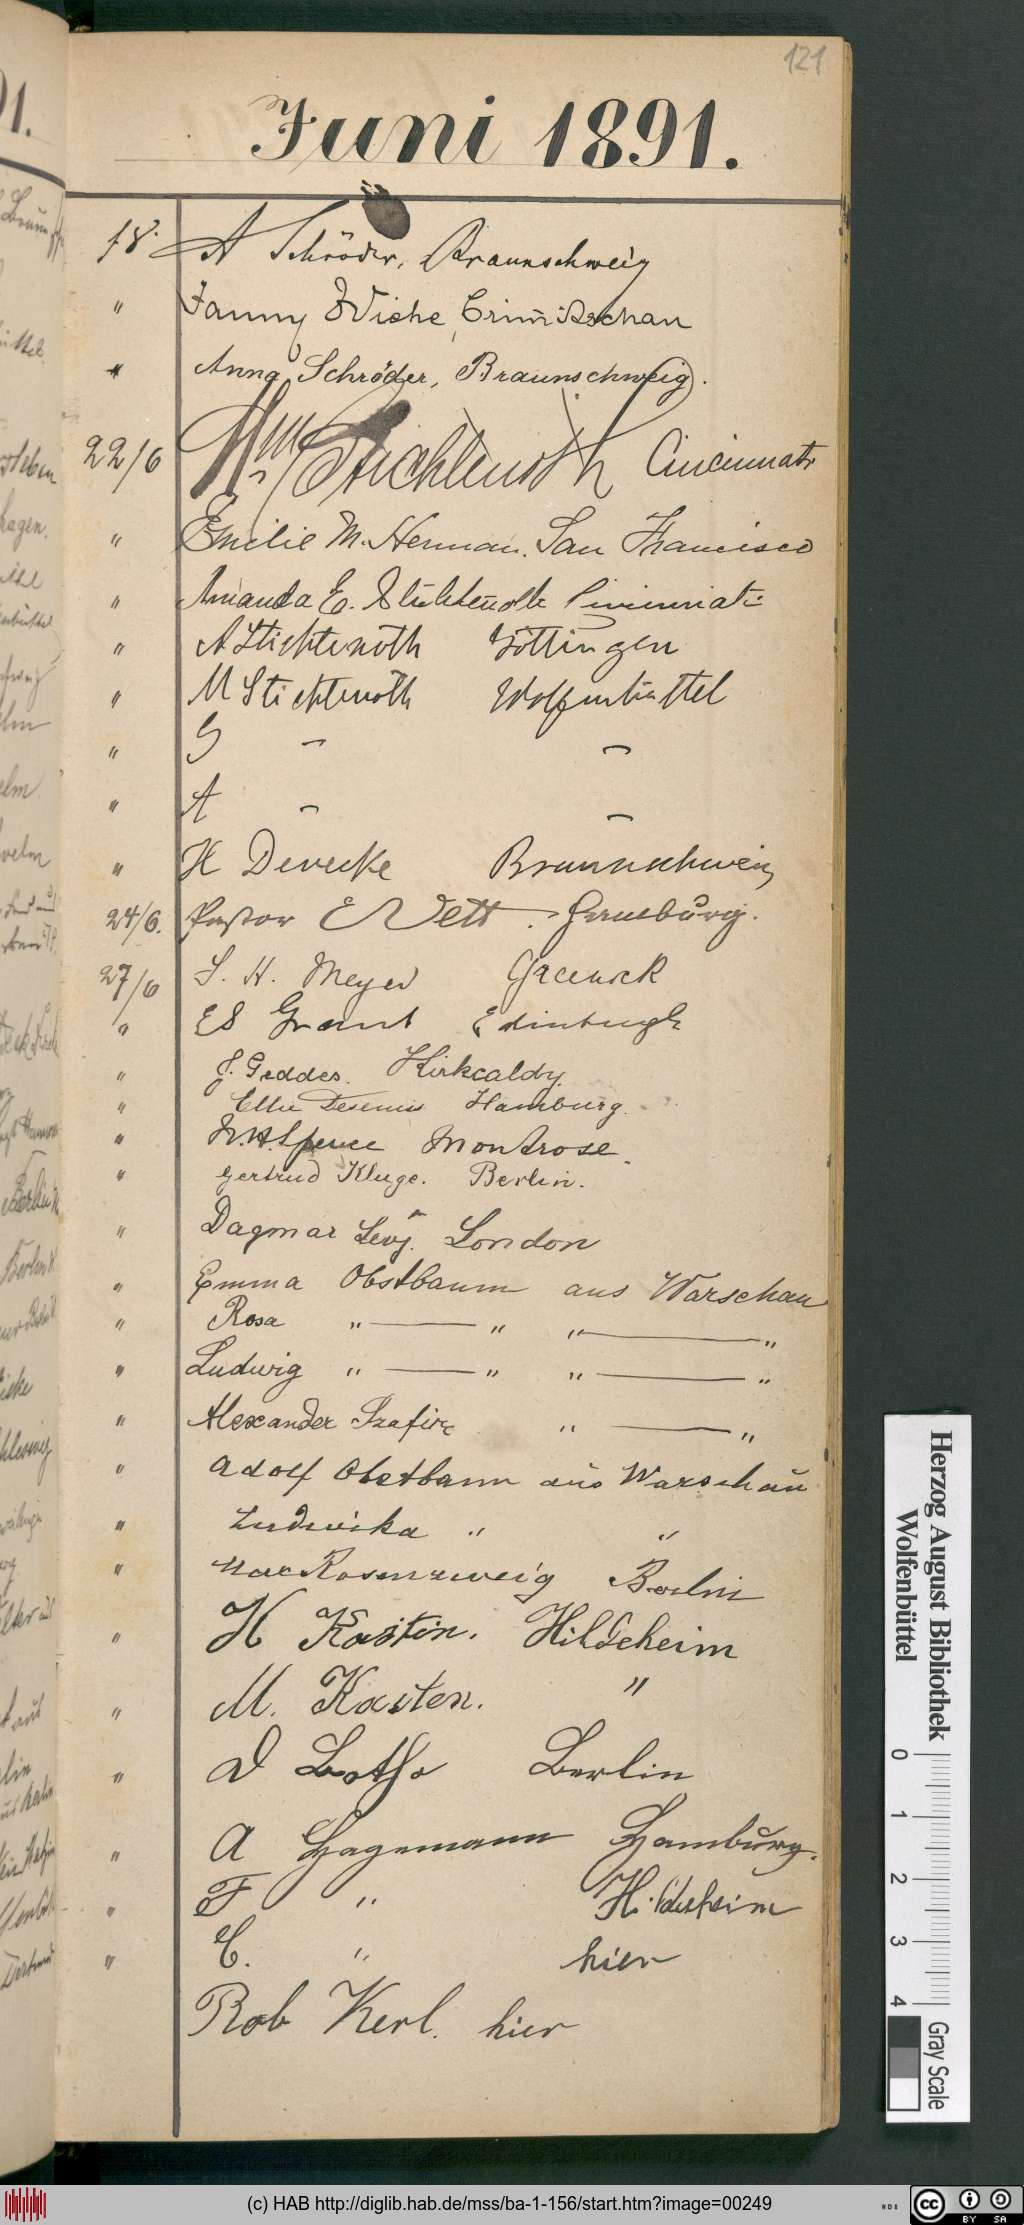 121
Juni 1891.
18. A Schröder, Braunschweig
" Fanny Wiehe, Crimitschau
" Anna Schröder, Braunschweig.
22/6 Wm Stichtenoth Cincinnati
" Emilie M. Herman. San Francisco
" Amanda E. Stichtenoth Cincinnati
" A Stichtenoth Göttingen
" M Stichtenoth Wolfenbüttel
" G – –
" A – –
" H Devecke Braunschweig
24/6. Pastor Harburg.
27/6 S. H. Meyer Greenock
" E S Grant Edinburgh
" J. Geddes. Kirkcaldy.
" Ellie Hamburg.
" W. H. Spence Montrose.
" Gertrud Kluge. Berlin.
" Dagmar Levy. London
" Emma Obstbaum aus Warschau
" Rosa " — " " — "
" Ludwig " — " " — "
" Alexander Szafir " — "
" Adolf Obstbaum aus Warschau
" Ludwika " "
" Max Rosenzweig Berlin
" H Kasten. Hildeheim
" M. Kasten. "
" D Berlin
" A Hagemann Hamburg.
" F " Hildesheim
" C. " hier
Rob Kerl. hier
Herzog August Bibliothek
Wolfenbüttel
0 1 2 3 4
Gray Scale
(c) HAB http://diglib.hab.de/mss/ba-1-156/start.htm?image=00249
WDB
CC BY SA